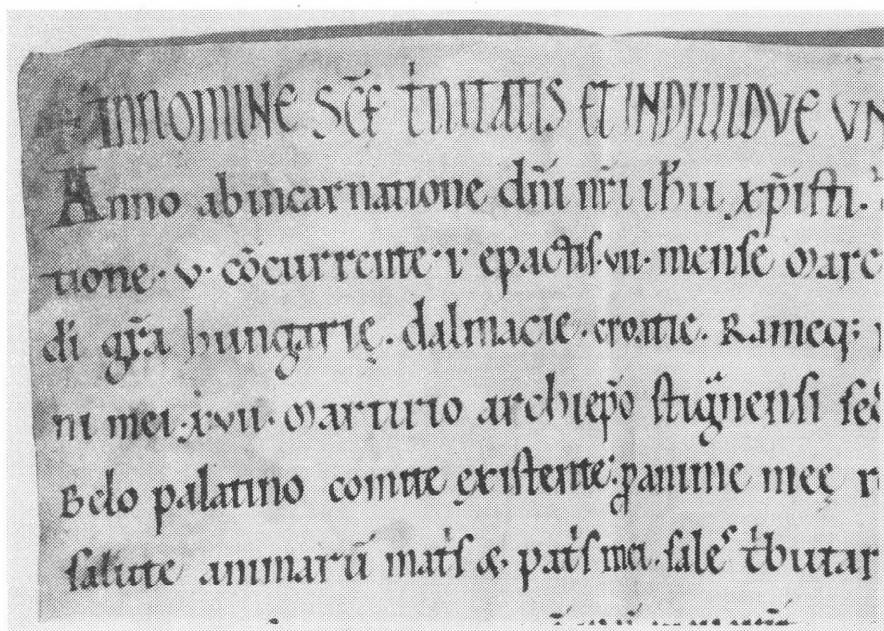 IN NOMINE SC̄E TͥNITATIS ET INDIUIDVE VN
Anno ab incarnatione dn̄i nr̄i ih̄u xp̄isti.
tione · v · cōcurrente · v epactis · vii · mense Marc
di gr̄a hungarię · dalmacie · croatie · Rameq;
ni mei · xvii · Martirio archiep̄o stigͣnensi sed
Belo palatino comite existente; ꝓ anime meę r
salute animarū matͥs & patͥs mei · saleˢ tͥbutar